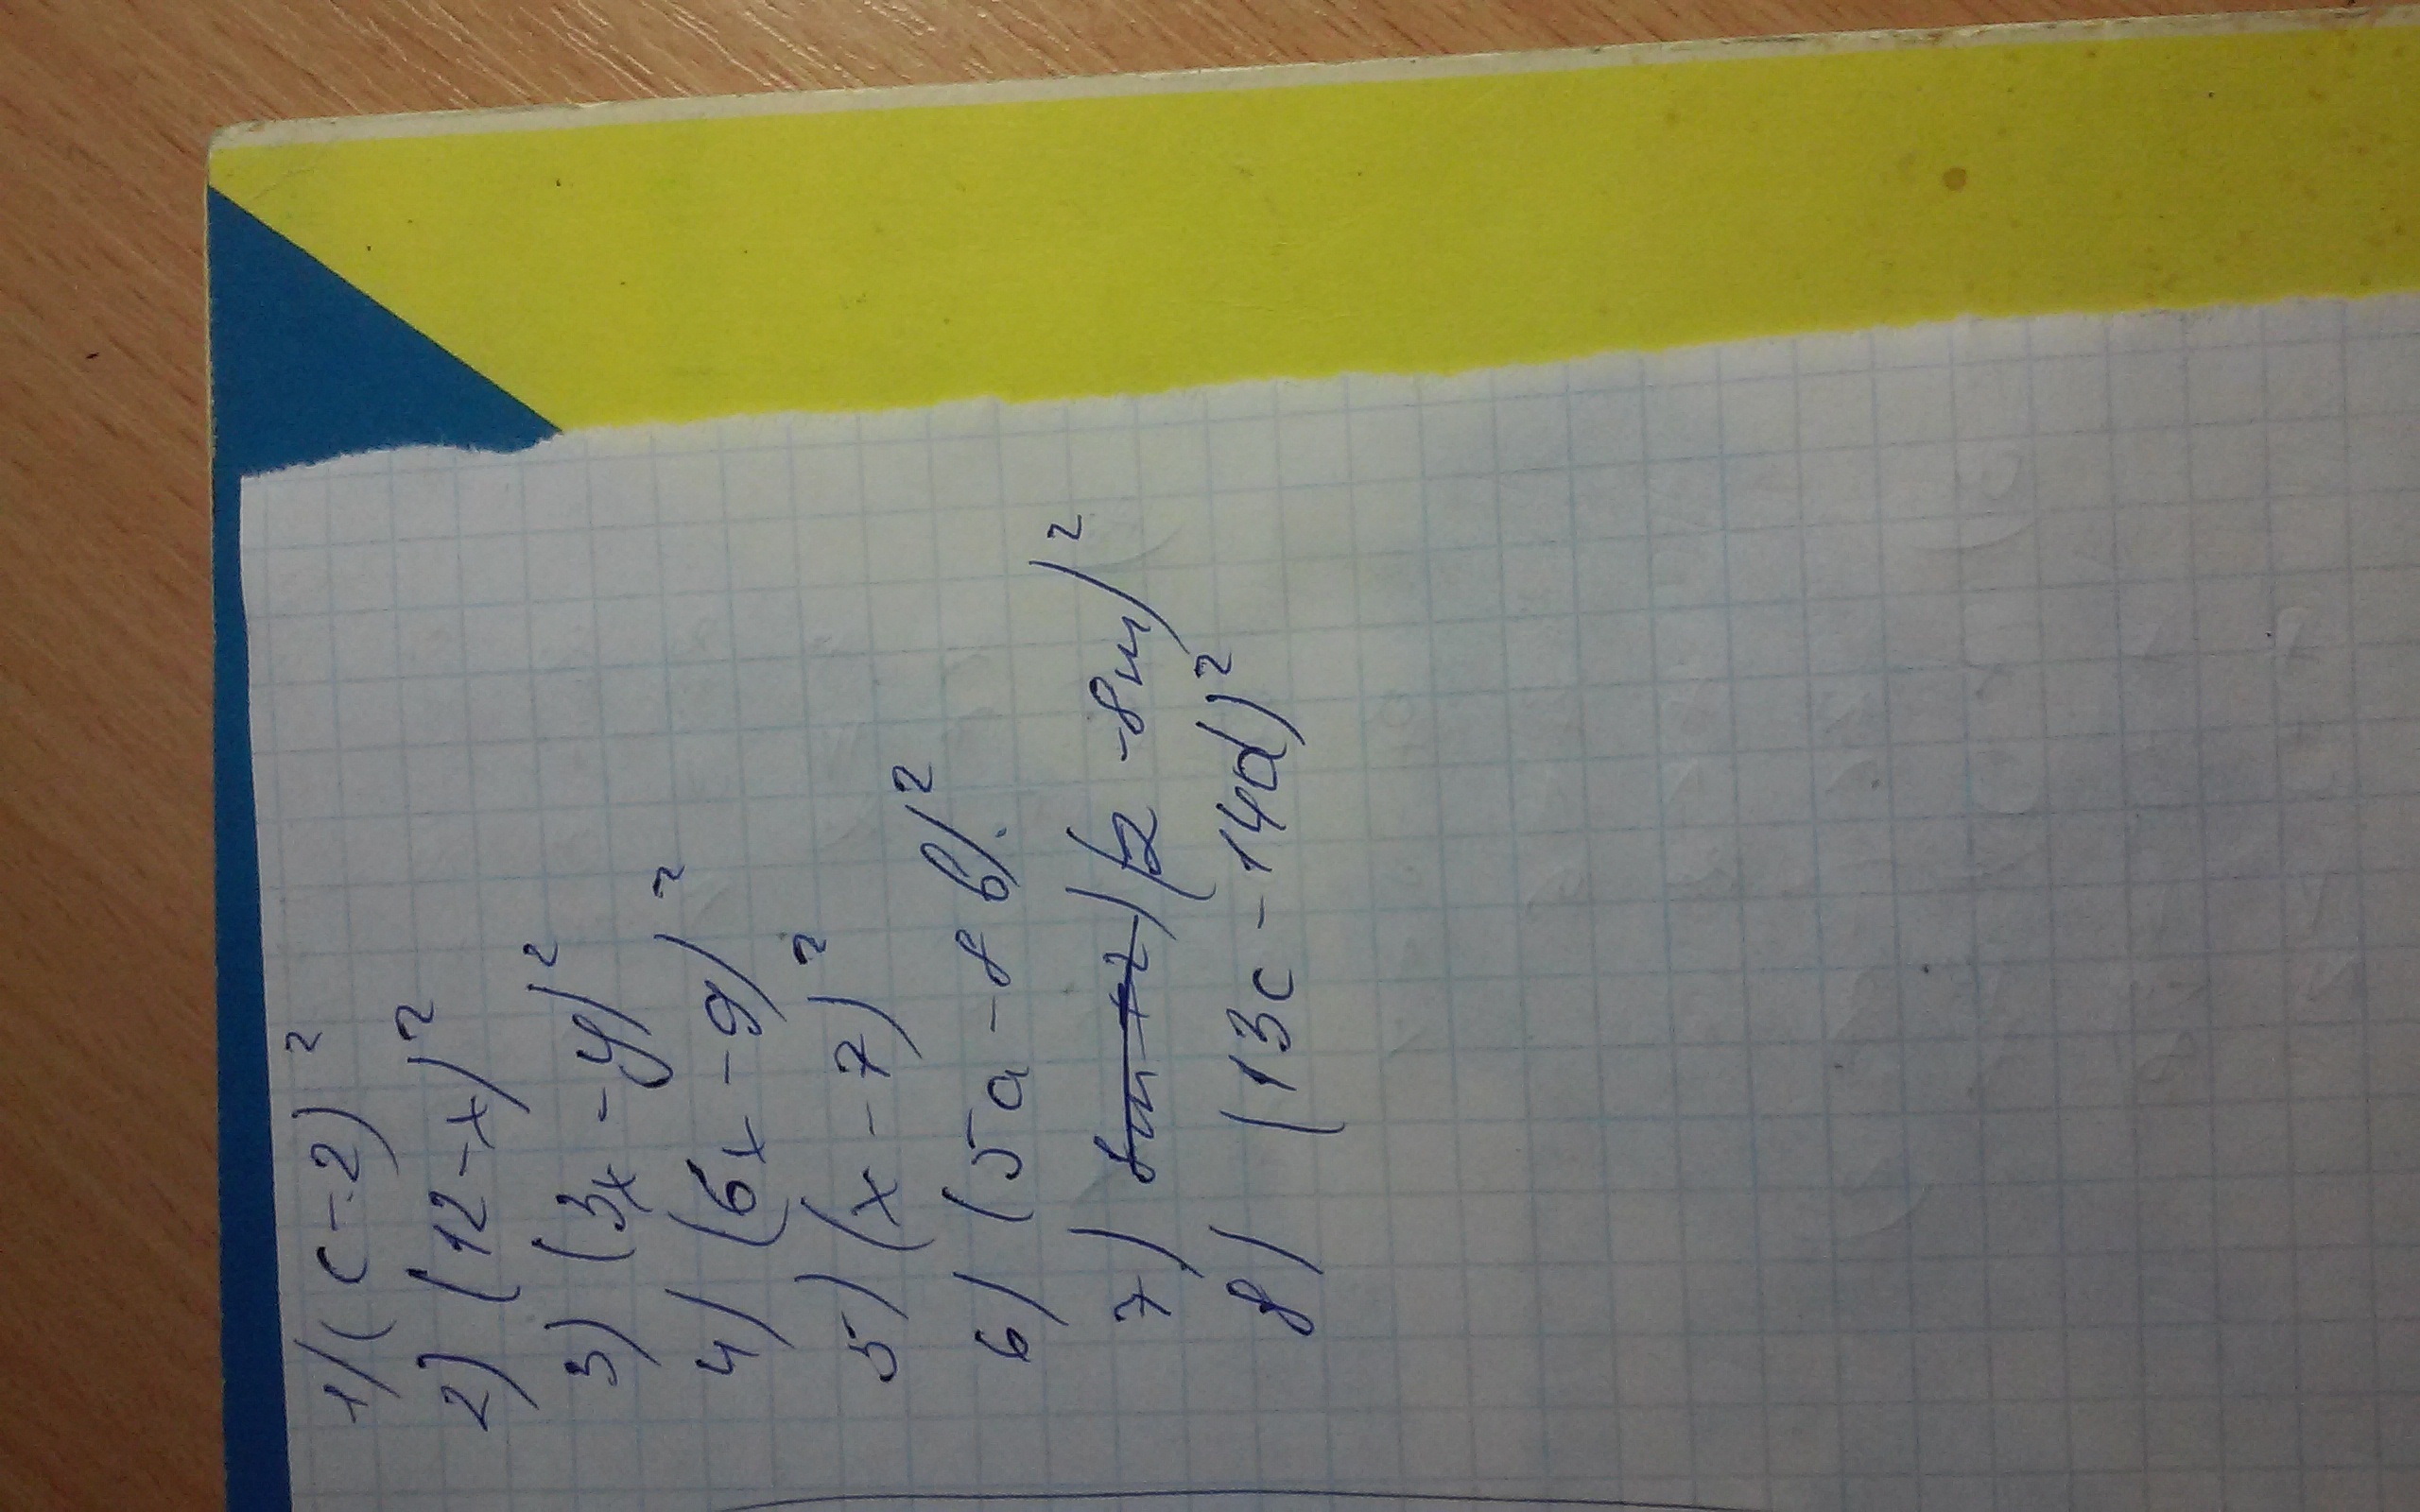 1) (c-2)²
2) (12-x)²
3) (3x-y)²
4) (6x-9)²
5) (x-7)²
6) (5a-8b)²
7) (z-8m)²
8) (13c-14d)²